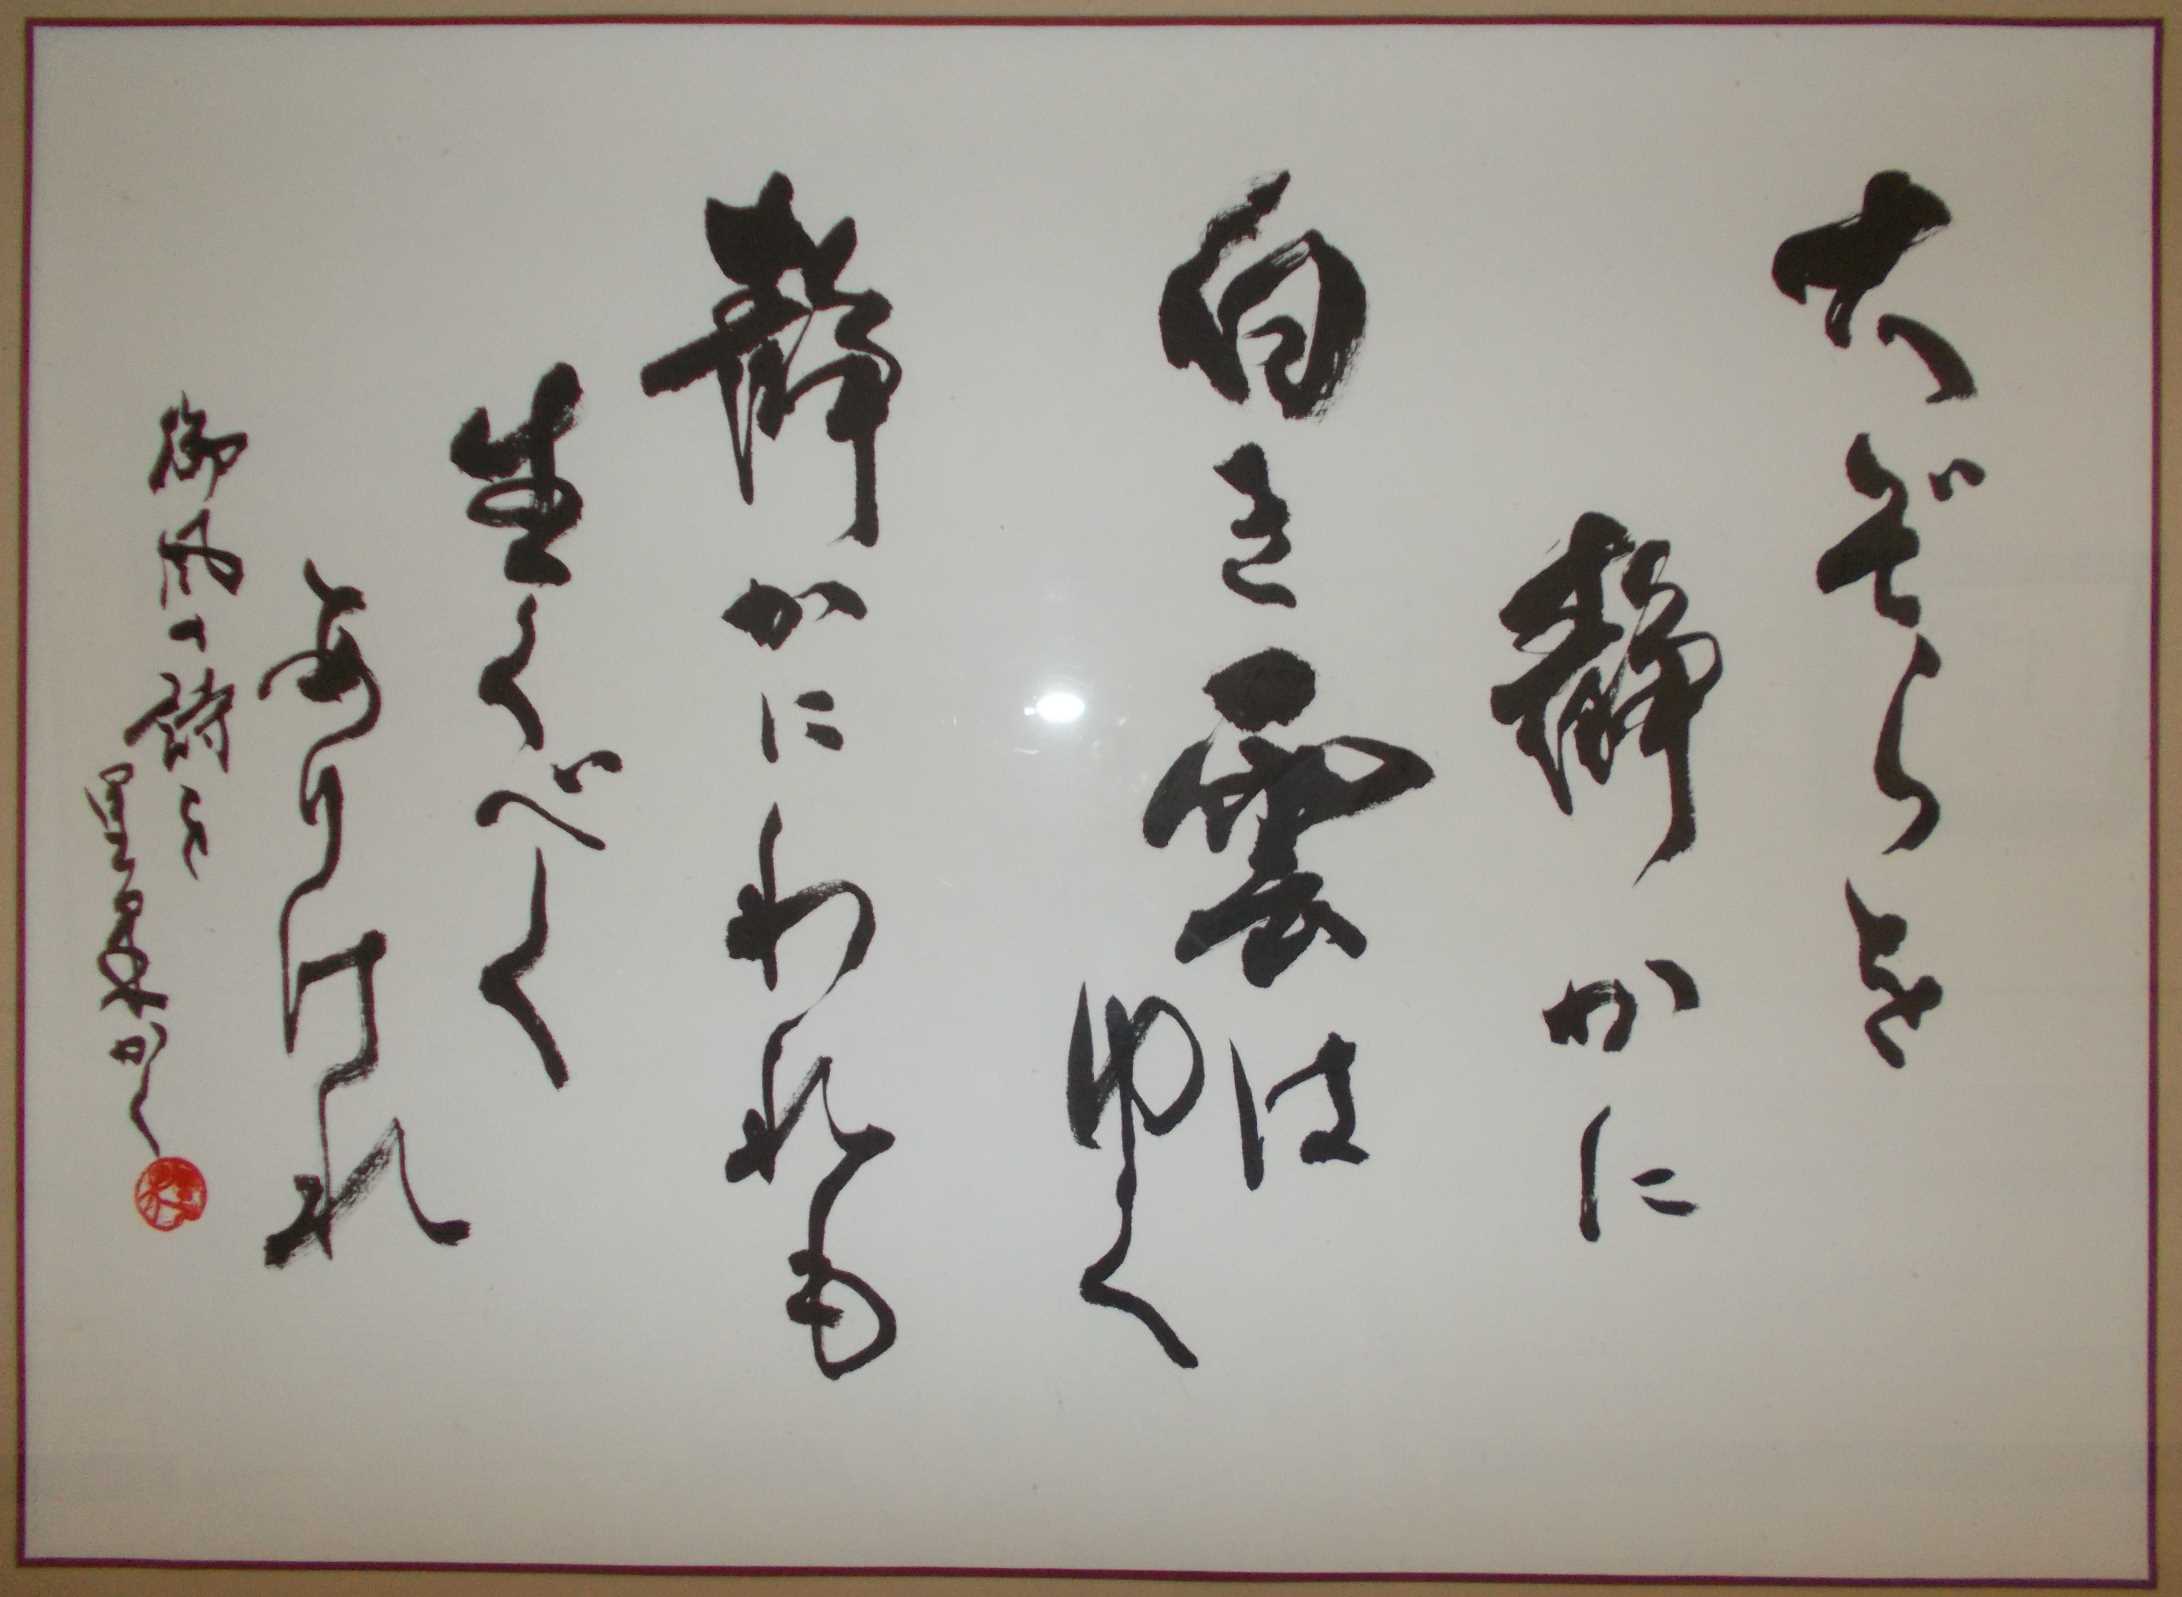 大ぞらを
静かに
白き雲は
ゆく
静かにわれも
生くべく
ありけれ
御風の詩を